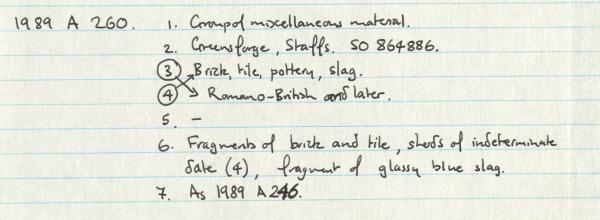 1989 A 260. 1. Group of miscellaneous material.
2. Greensforge, Staffs. SO 864886.
3 Brick, tile, pottery, slag.
4 Romano-British and later.
5. –
6. Fragments of brick and tile, sherds of indeterminate
date (4), fragment of glassy blue slag.
7. As 1989 A 246.